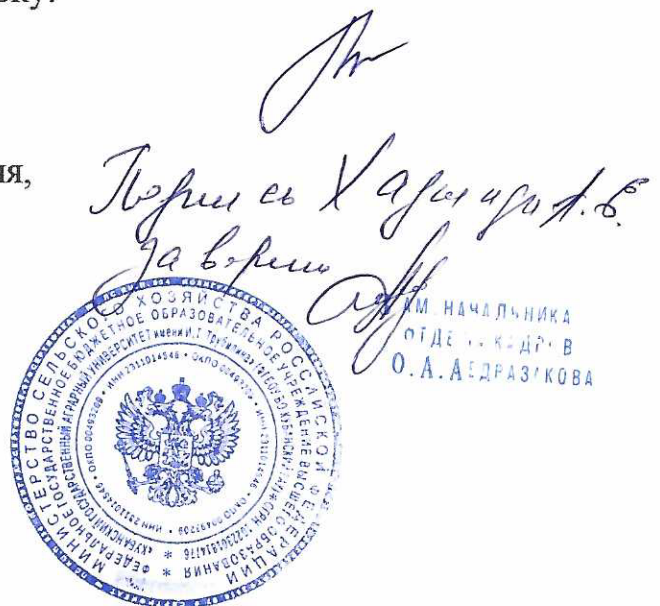 ня,
Подпись Хаджиди А.Е.
заверяю
ЗАМ. НАЧАЛЬНИКА
ОТДЕЛА КАДРОВ
О.А.
МИНИСТЕРСТВО СЕЛЬСКОГО ХОЗЯЙСТВА РОССИЙСКОЙ ФЕДЕРАЦИИ
ФЕДЕРАЛЬНОЕ ГОСУДАРСТВЕННОЕ БЮДЖЕТНОЕ ОБРАЗОВАТЕЛЬНОЕ УЧРЕЖДЕНИЕ ВЫСШЕГО ОБРАЗОВАНИЯ
«КУБАНСКИЙ ГОСУДАРСТВЕННЫЙ АГРАРНЫЙ УНИВЕРСИТЕТ имени И.Т. Трубилина»
ИНН 2311014546 * ОКПО 00493209